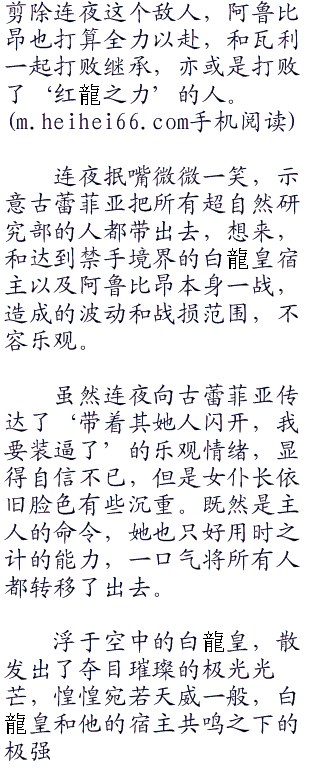 剪除连夜这个敌人，阿鲁比
昂也打算全力以赴，和瓦利
一起打败继承，亦或是打败
了‘红龍之力’的人。
(m.heihei66.com手机阅读)
连夜抿嘴微微一笑，示
意古蕾菲亚把所有超自然研
究部的人都带出去，想来，
和达到禁手境界的白龍皇宿
主以及阿鲁比昂本身一战，
造成的波动和战损范围，不
容乐观。
虽然连夜向古蕾菲亚传
达了‘带着其她人闪开，我
要装逼了’的乐观情绪，显
得自信不已，但是女仆长依
旧脸色有些沉重。既然是主
人的命令，她也只好用时之
计的能力，一口气将所有人
都转移了出去。
浮于空中的白龍皇，散
发出了夺目璀璨的极光光
芒，惶惶宛若天威一般，白
龍皇和他的宿主共鸣之下的
极强